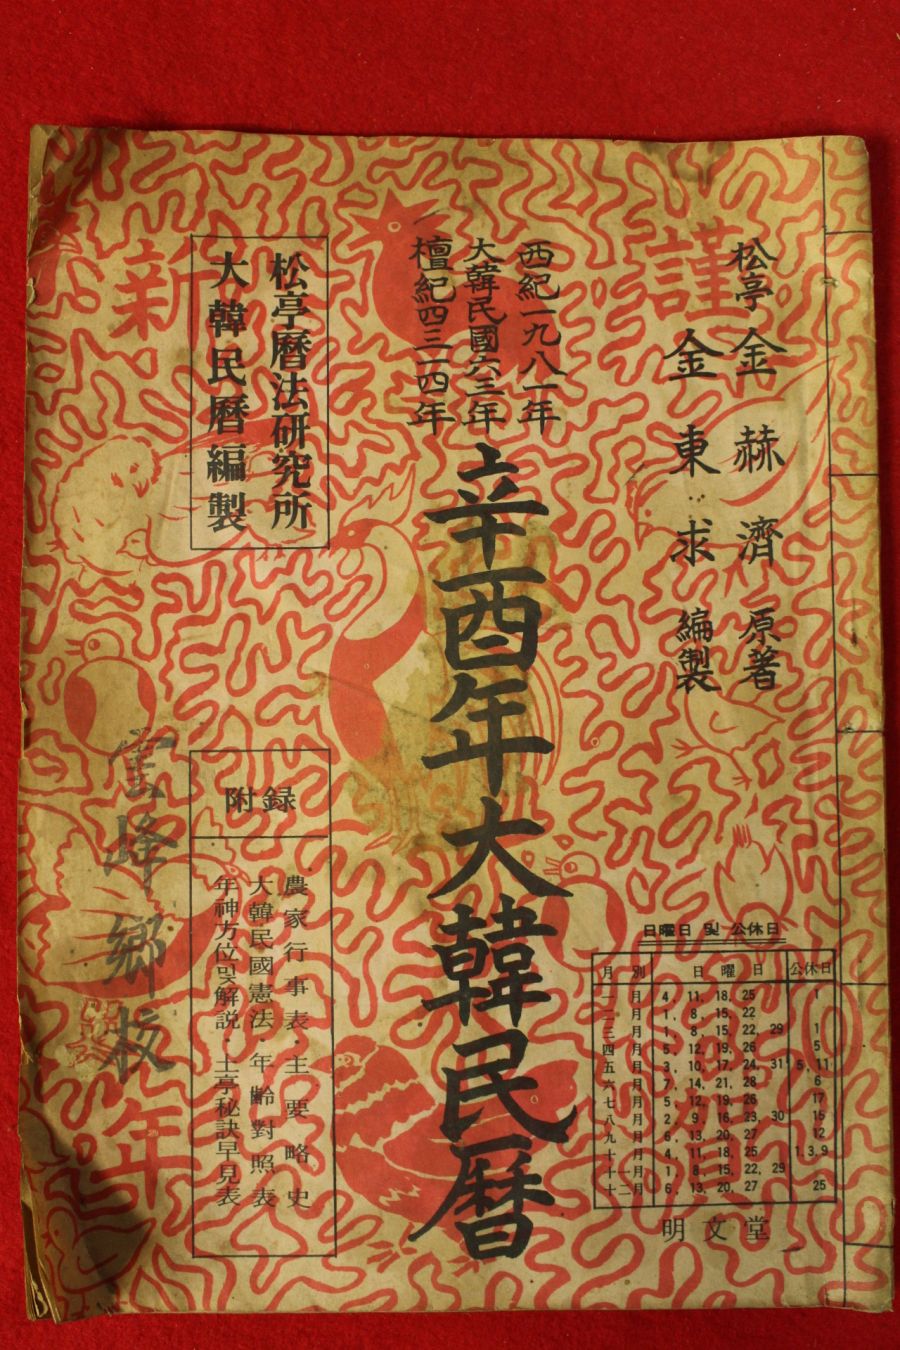 謹
新
年
松亭 金赫濟 原著
金東求 編製
西紀一九八一年
大韓民國六三年
檀紀四三一四年
辛酉年大韓民曆
松亭曆法研究所
大韓民曆編製
附錄
農家行事表·主要略史
大韓民國憲法·年齡對照表
年神方位및解說·土亭秘訣早見表
雲峰鄉校
日曜日 및 公休日
月別 日曜日 公休日
一月 4, 11, 18, 25 1
二月 1, 8, 15, 22
三月 1, 8, 15, 22, 29 1
四月 5, 12, 19, 26 5
五月 3, 10, 17, 24, 31 5, 11
六月 7, 14, 21, 28 6
七月 5, 12, 19, 26 17
八月 2, 9, 16, 23, 30 15
九月 6, 13, 20, 27 12
十月 4, 11, 18, 25 1, 3, 9
十一月 1, 8, 15, 22, 29
十二月 6, 13, 20, 27 25
明文堂